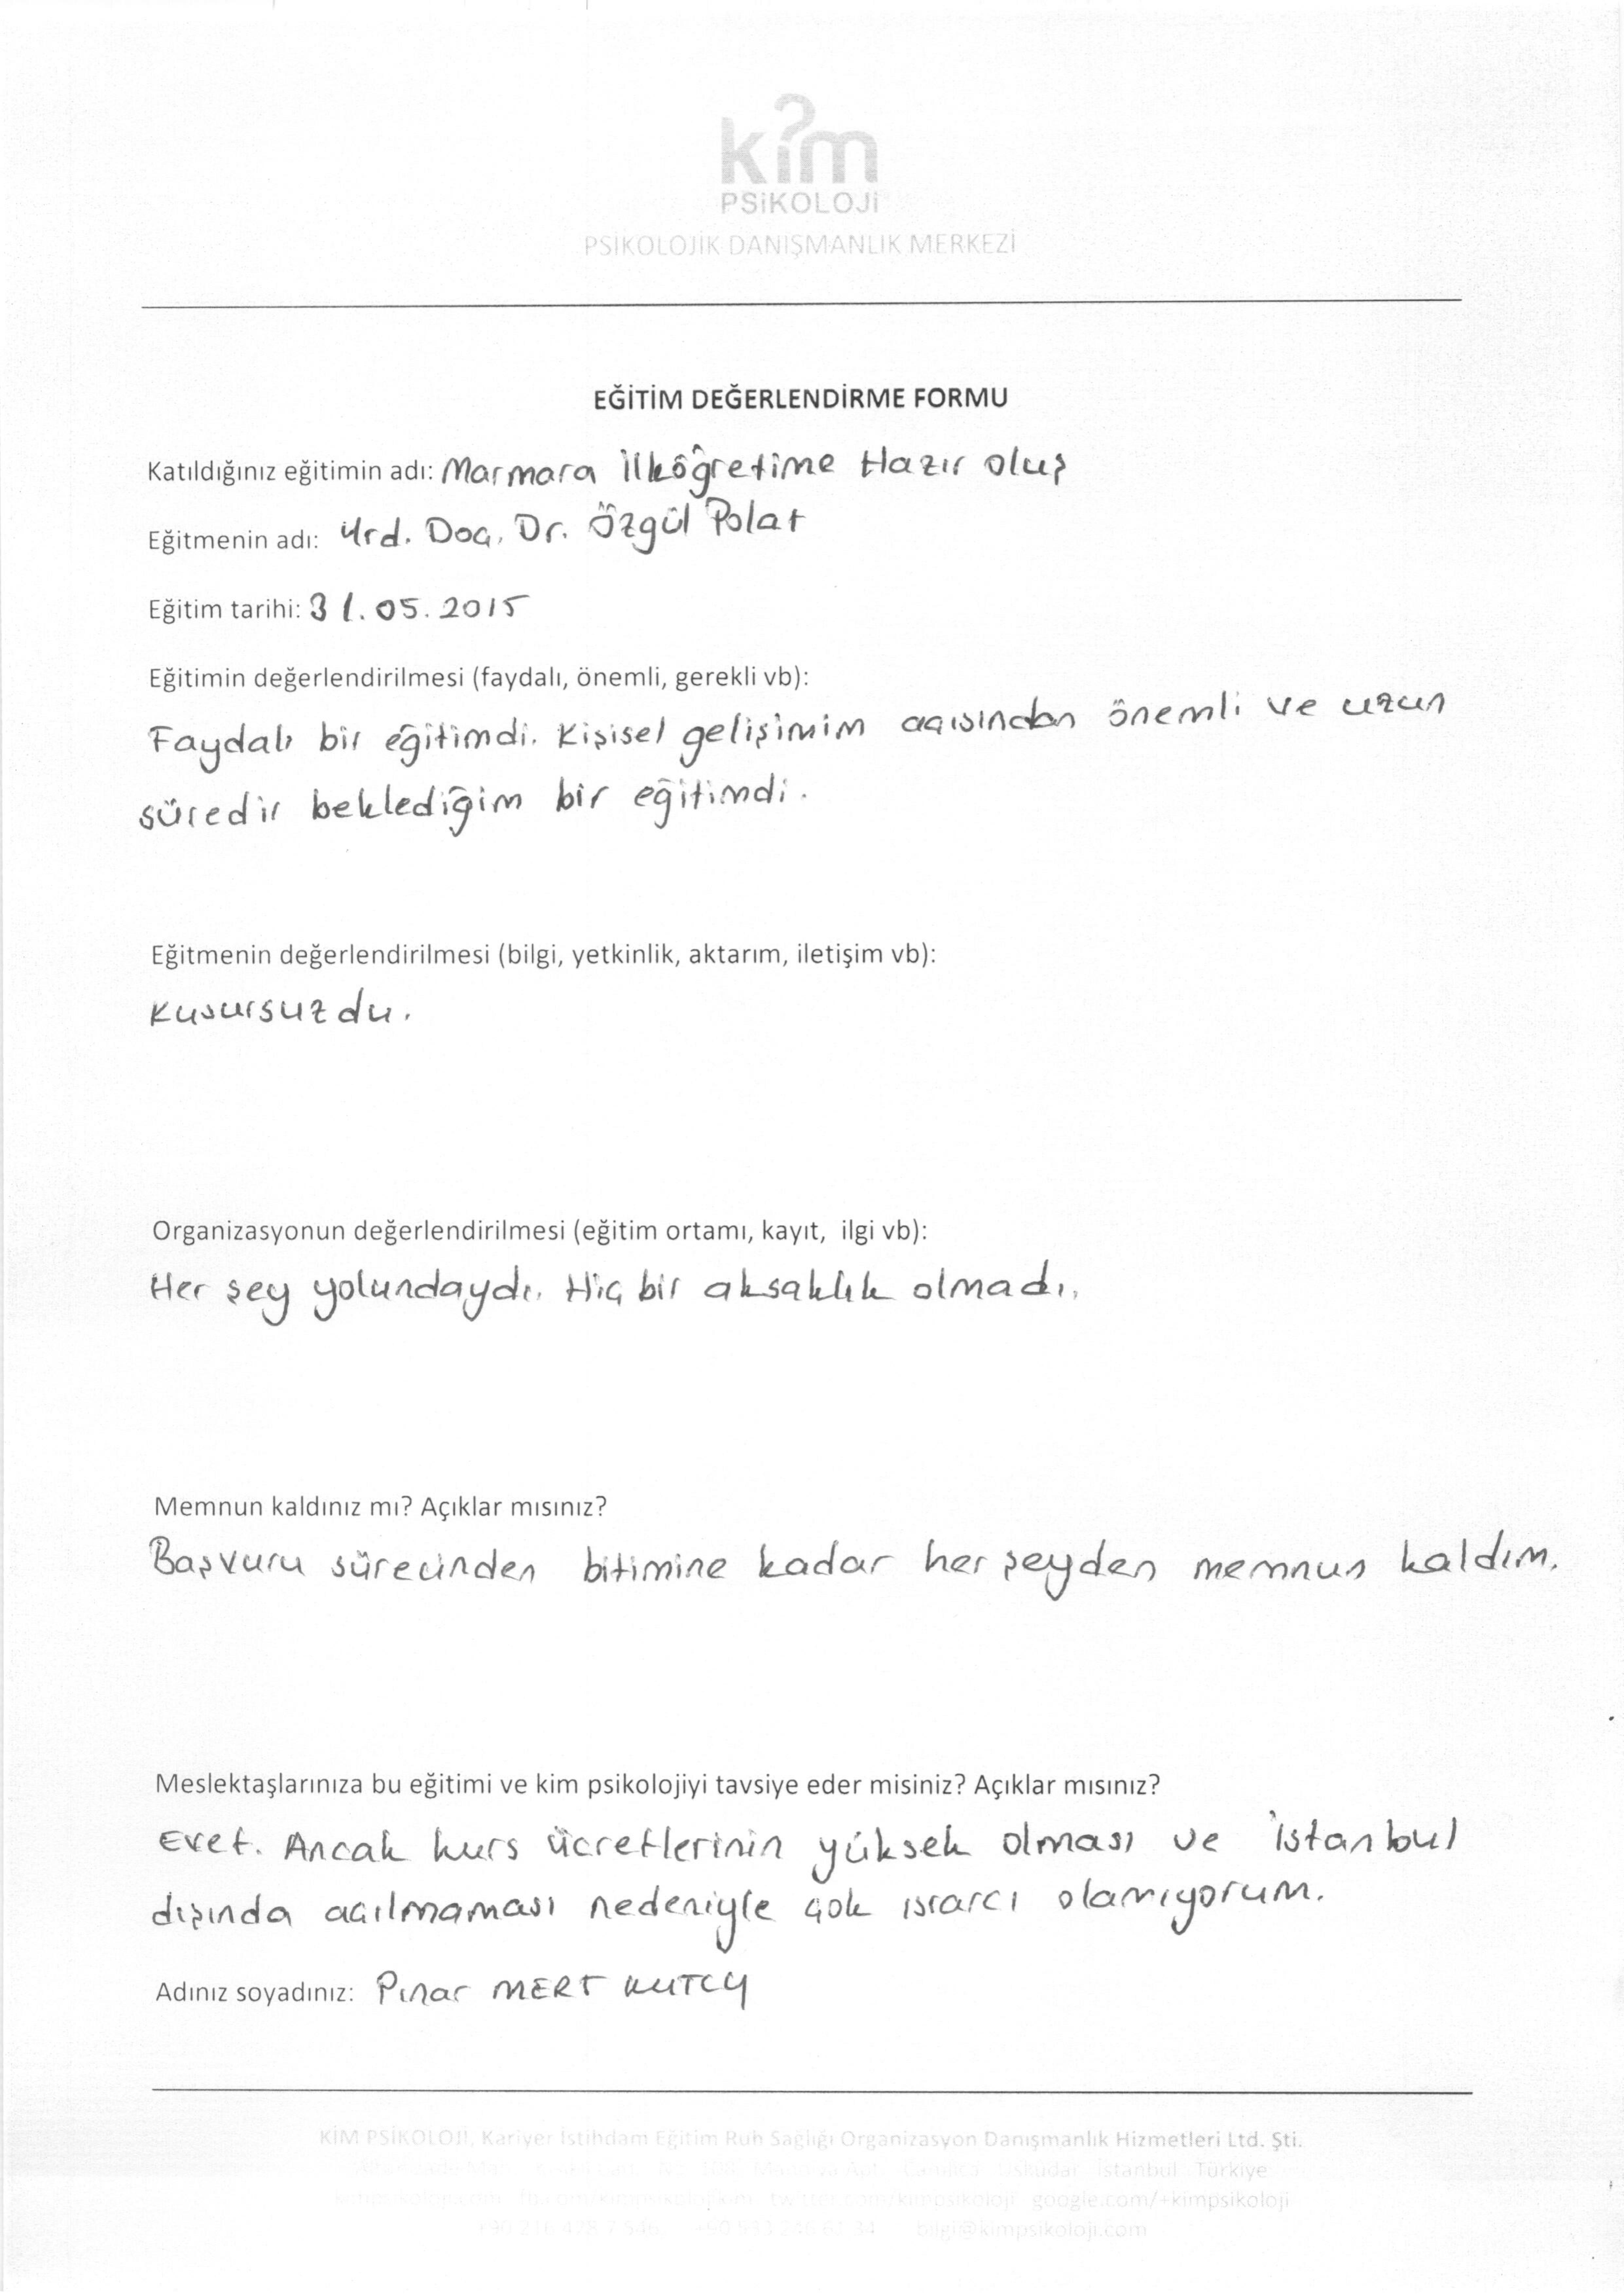 kim
PSiKOLOJi
PSİKOLOJİK DANIŞMANLIK MERKEZİ
EĞİTİM DEĞERLENDİRME FORMU
Katıldığınız eğitimin adı: Marmara İlköğretime Hazır oluş
Eğitmenin adı: Yrd. Doç. Dr. Özgül Polat
Eğitim tarihi: 31.05.2015
Eğitimin değerlendirilmesi (faydalı, önemli, gerekli vb):
Faydalı bir eğitimdi. Kişisel gelişimim açısından önemli ve uzun
süredir beklediğim bir eğitimdi.
Eğitmenin değerlendirilmesi (bilgi, yetkinlik, aktarım, iletişim vb):
Kusursuzdu.
Organizasyonun değerlendirilmesi (eğitim ortamı, kayıt, ilgi vb):
Her şey yolundaydı. Hiç bir aksaklık olmadı.
Memnun kaldınız mı? Açıklar mısınız?
Başvuru sürecinden bitimine kadar her şeyden memnun kaldım.
Meslektaşlarınıza bu eğitimi ve kim psikolojiyi tavsiye eder misiniz? Açıklar mısınız?
Evet. Ancak kurs ücretlerinin yüksek olması ve İstanbul
dışında açılmaması nedeniyle çok ısrarcı olamıyorum.
Adınız soyadınız: Pınar MERT
KİM PSİKOLOJİ, Kariyer İstihdam Eğitim Ruh Sağlığı Organizasyon Danışmanlık Hizmetleri Ltd. Şti.
Üsküdar İstanbul Türkiye
google.com/+kimpsikoloji
bilgi@kimpsikoloji.com